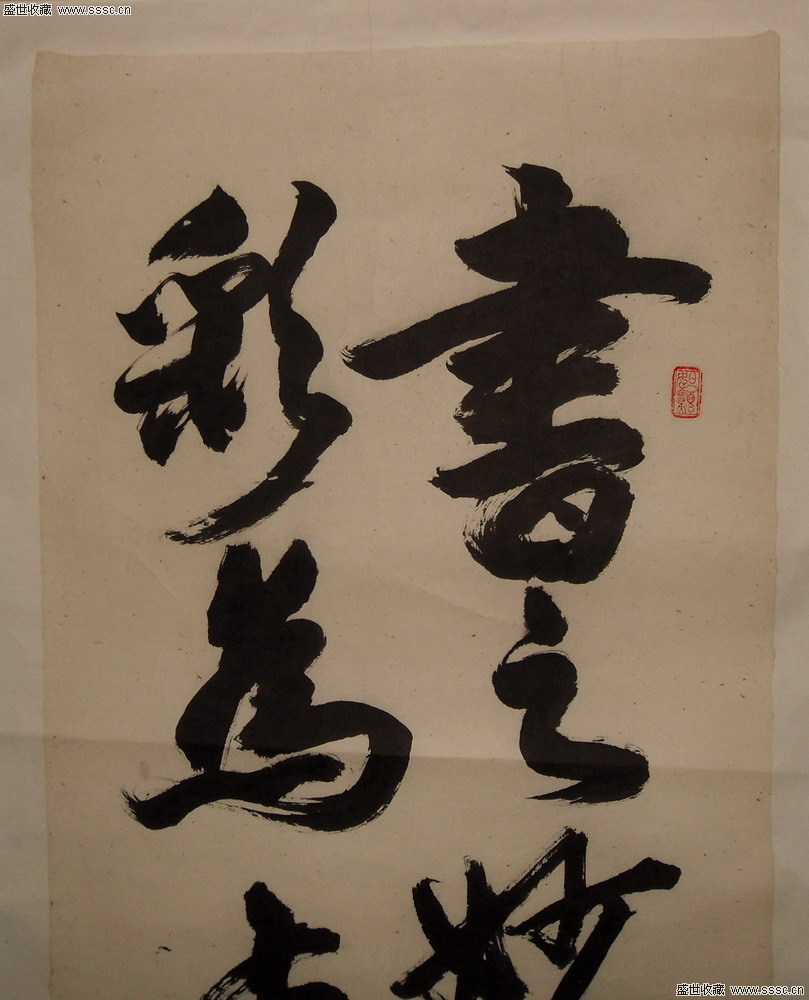 盛世收藏 www.sssc.cn
書之妙
彩為
盛世收藏 www.sssc.cn